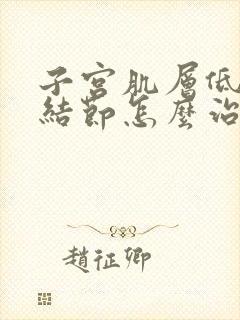 子宮肌層低
結節怎麼治
趙征卿